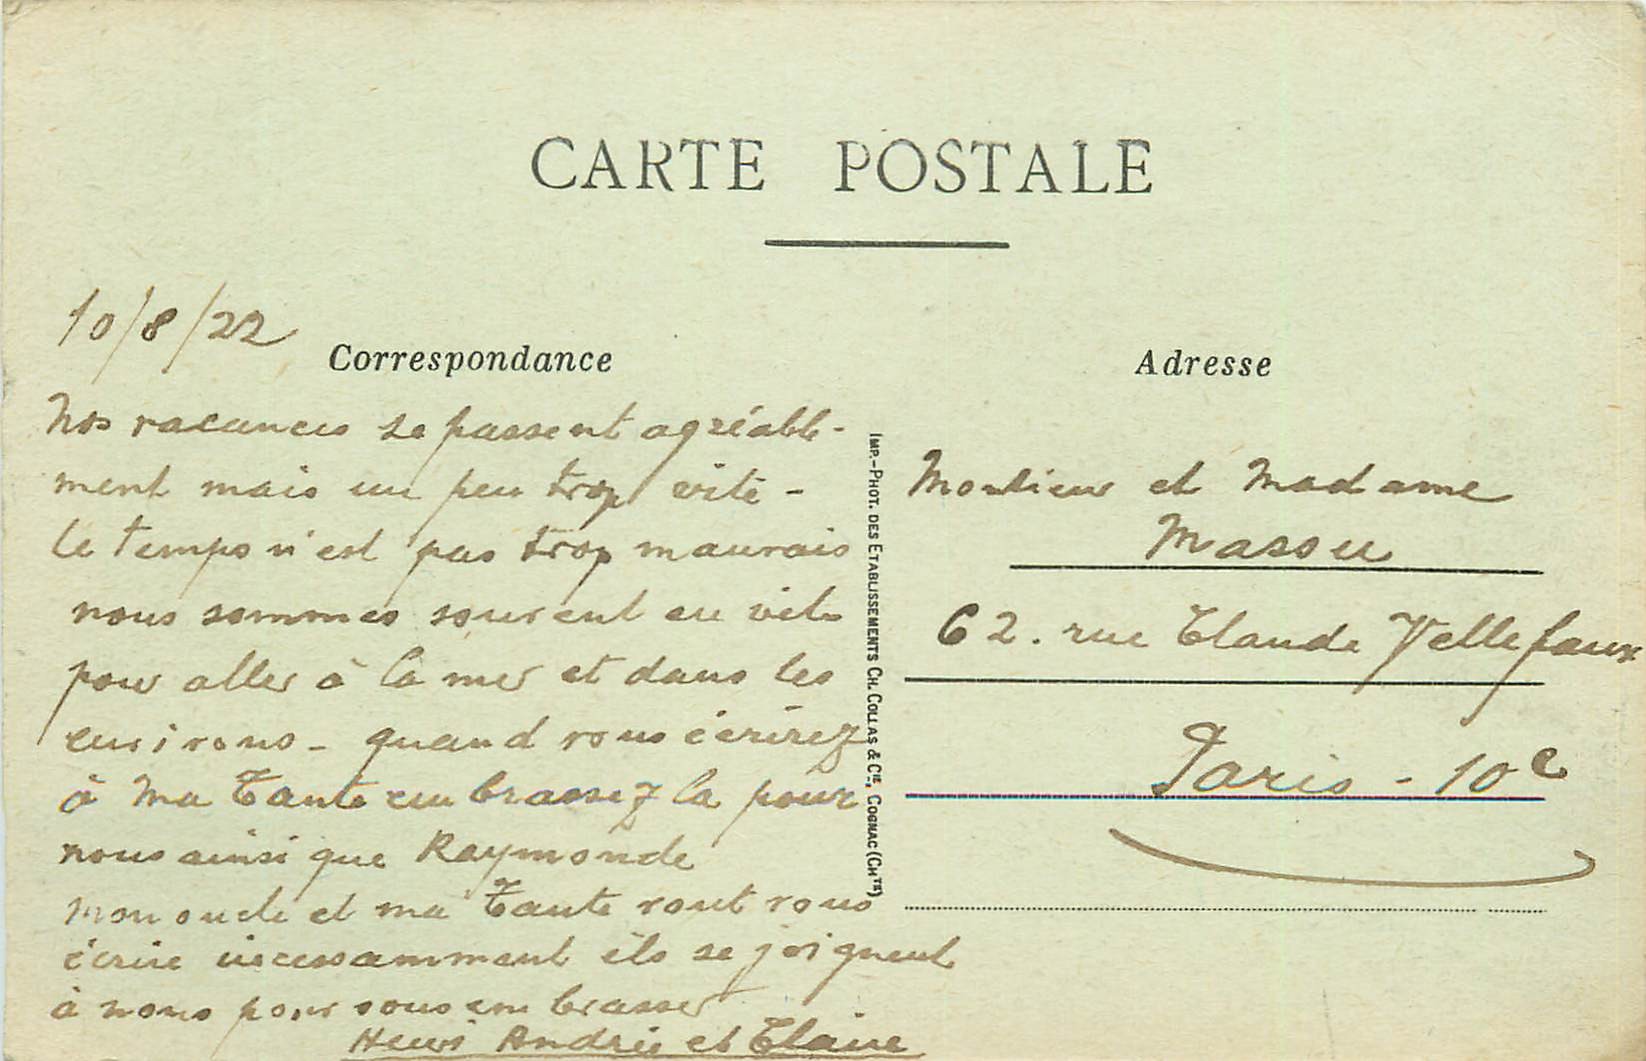 CARTE POSTALE
10/8/22
Correspondance
Nos vacances se passent agréable-
ment mais un peu trop vite -
le temps n'est pas trop mauvais
nous sommes souvent en vélo
pour aller à la mer et dans les
environs - quand vous écrirez
à ma Tante embrassez la pour
nous ainsi que Raymonde
mon oncle et ma Tante vont vous
écrire incessamment ils se joignent
à nous pour vous embrasser
Henri Andrée et Claire
IMP.-PHOT. DES ETABLISSEMENTS CH. COLLAS & CIE, COGNAC (CHTE)
Adresse
Monsieur et Madame
Massu
62. rue Claude Vellefaux
Paris - 10e